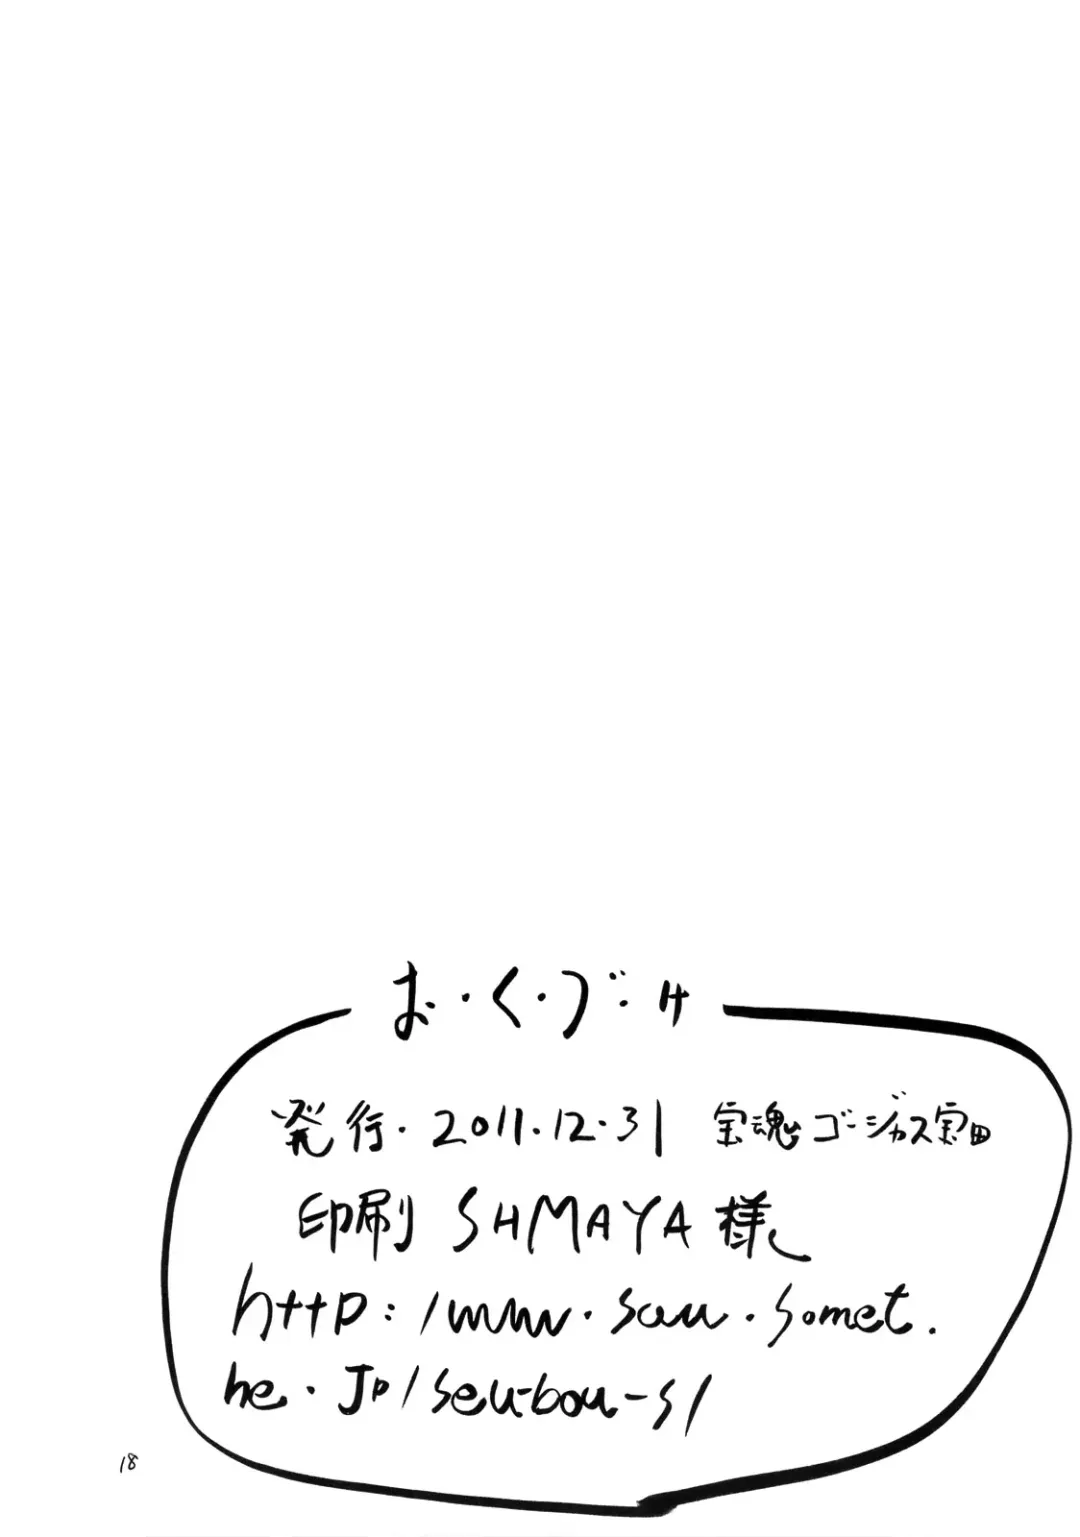 お・く・づ・け
発行・2011.12.31 宝魂ゴージャス宝田
印刷 SHMAYA 様
http:/www.sau.somet.
ne.Jp/seubou-s/
18